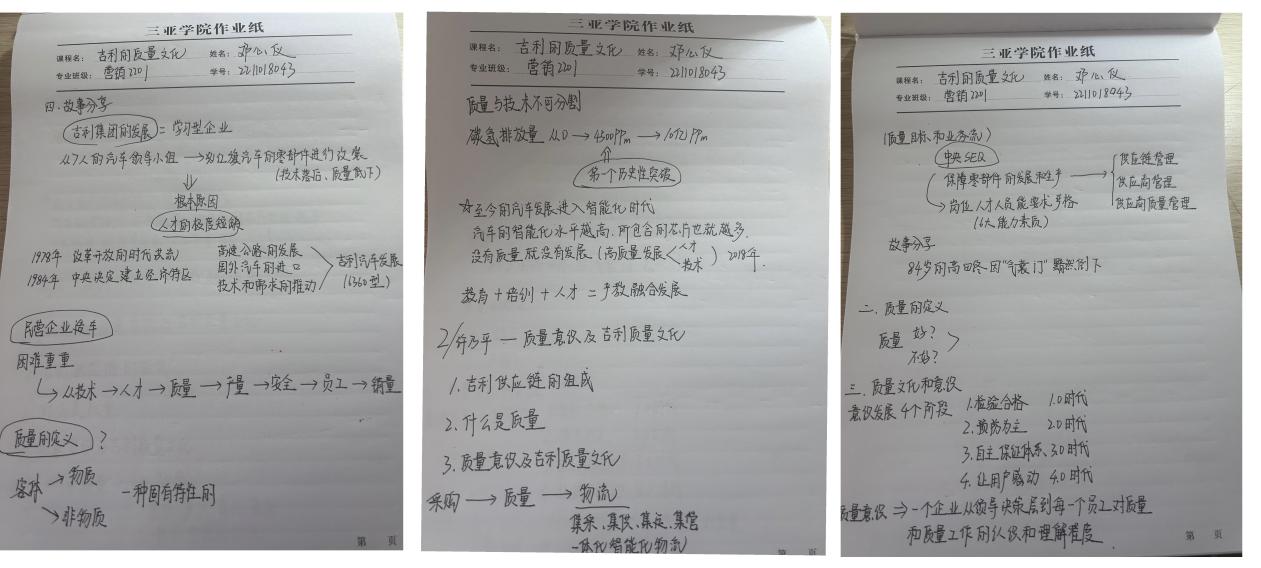 三亚学院作业纸
课程名: 吉利的质量文化 姓名: 邓心仪
专业班级: 营销2201 学号: 2211018043
四.故事分享
吉利集团的发展 = 学习型企业
从7人的汽车领导小组 → 独立
汽车的零部件进行改装
(技术落后、质量低下)
根本原因
人才的极度短缺
1978年 改革开放的时代
1984年 中央决定建立经济特区
高速公路的发展
国外汽车的进口
技术和需求的推动
吉利汽车发展
(6360型)
民营企业接手
困难重重
从技术 → 人才 → 质量 → 产量 → 安全 → 员工 → 销量
质量的定义 ?
客体 → 物质
→ 非物质
一种固有特性的
第 页
三亚学院作业纸
课程名: 吉利的质量文化 姓名: 邓心仪
专业班级: 营销2201 学号: 2211018043
质量与技术不可分割
碳氢排放量 从0 → 4300PPm → 1072PPm
第一个历史性突破
☆至今的汽车发展进入智能化时代
汽车的智能化水平越高,所包含的芯片也就越多.
没有质量就没有发展 (高质量发展 < 人才 技术 ) 2018年.
教育 + 培训 + 人才 = 产教融合发展
乃平 — 质量意识及吉利质量文化
1. 吉利供应链的组成
2. 什么是质量
3. 质量意识及吉利质量文化
采购 → 质量 → 物流
集采、集仅、集运、集管
一体化智能化物流
第 页
三亚学院作业纸
课程名: 吉利的质量文化 姓名: 邓心仪
专业班级: 营销2201 学号: 2211018043
(质量目标和业务流)
中央SEQ
保障零部件的发展和生产 →
供应链管理
供应商管理
供应商质量管理
岗位人才人员能要求资格
(6大能力素质)
故事分享
84岁的高田
因“气囊门”
倒下
二. 质量的定义
质量 好?
不好?
三. 质量文化和意识
意识发展4个阶段 1.检验合格 1.0时代
2.预防为主 2.0时代
3.自主保证体系 3.0时代
4.让用户感动 4.0时代
质量意识 ⇒ 一个企业从领导决策层到每一个员工对质量
和质量工作的认识和理解程度
第 页